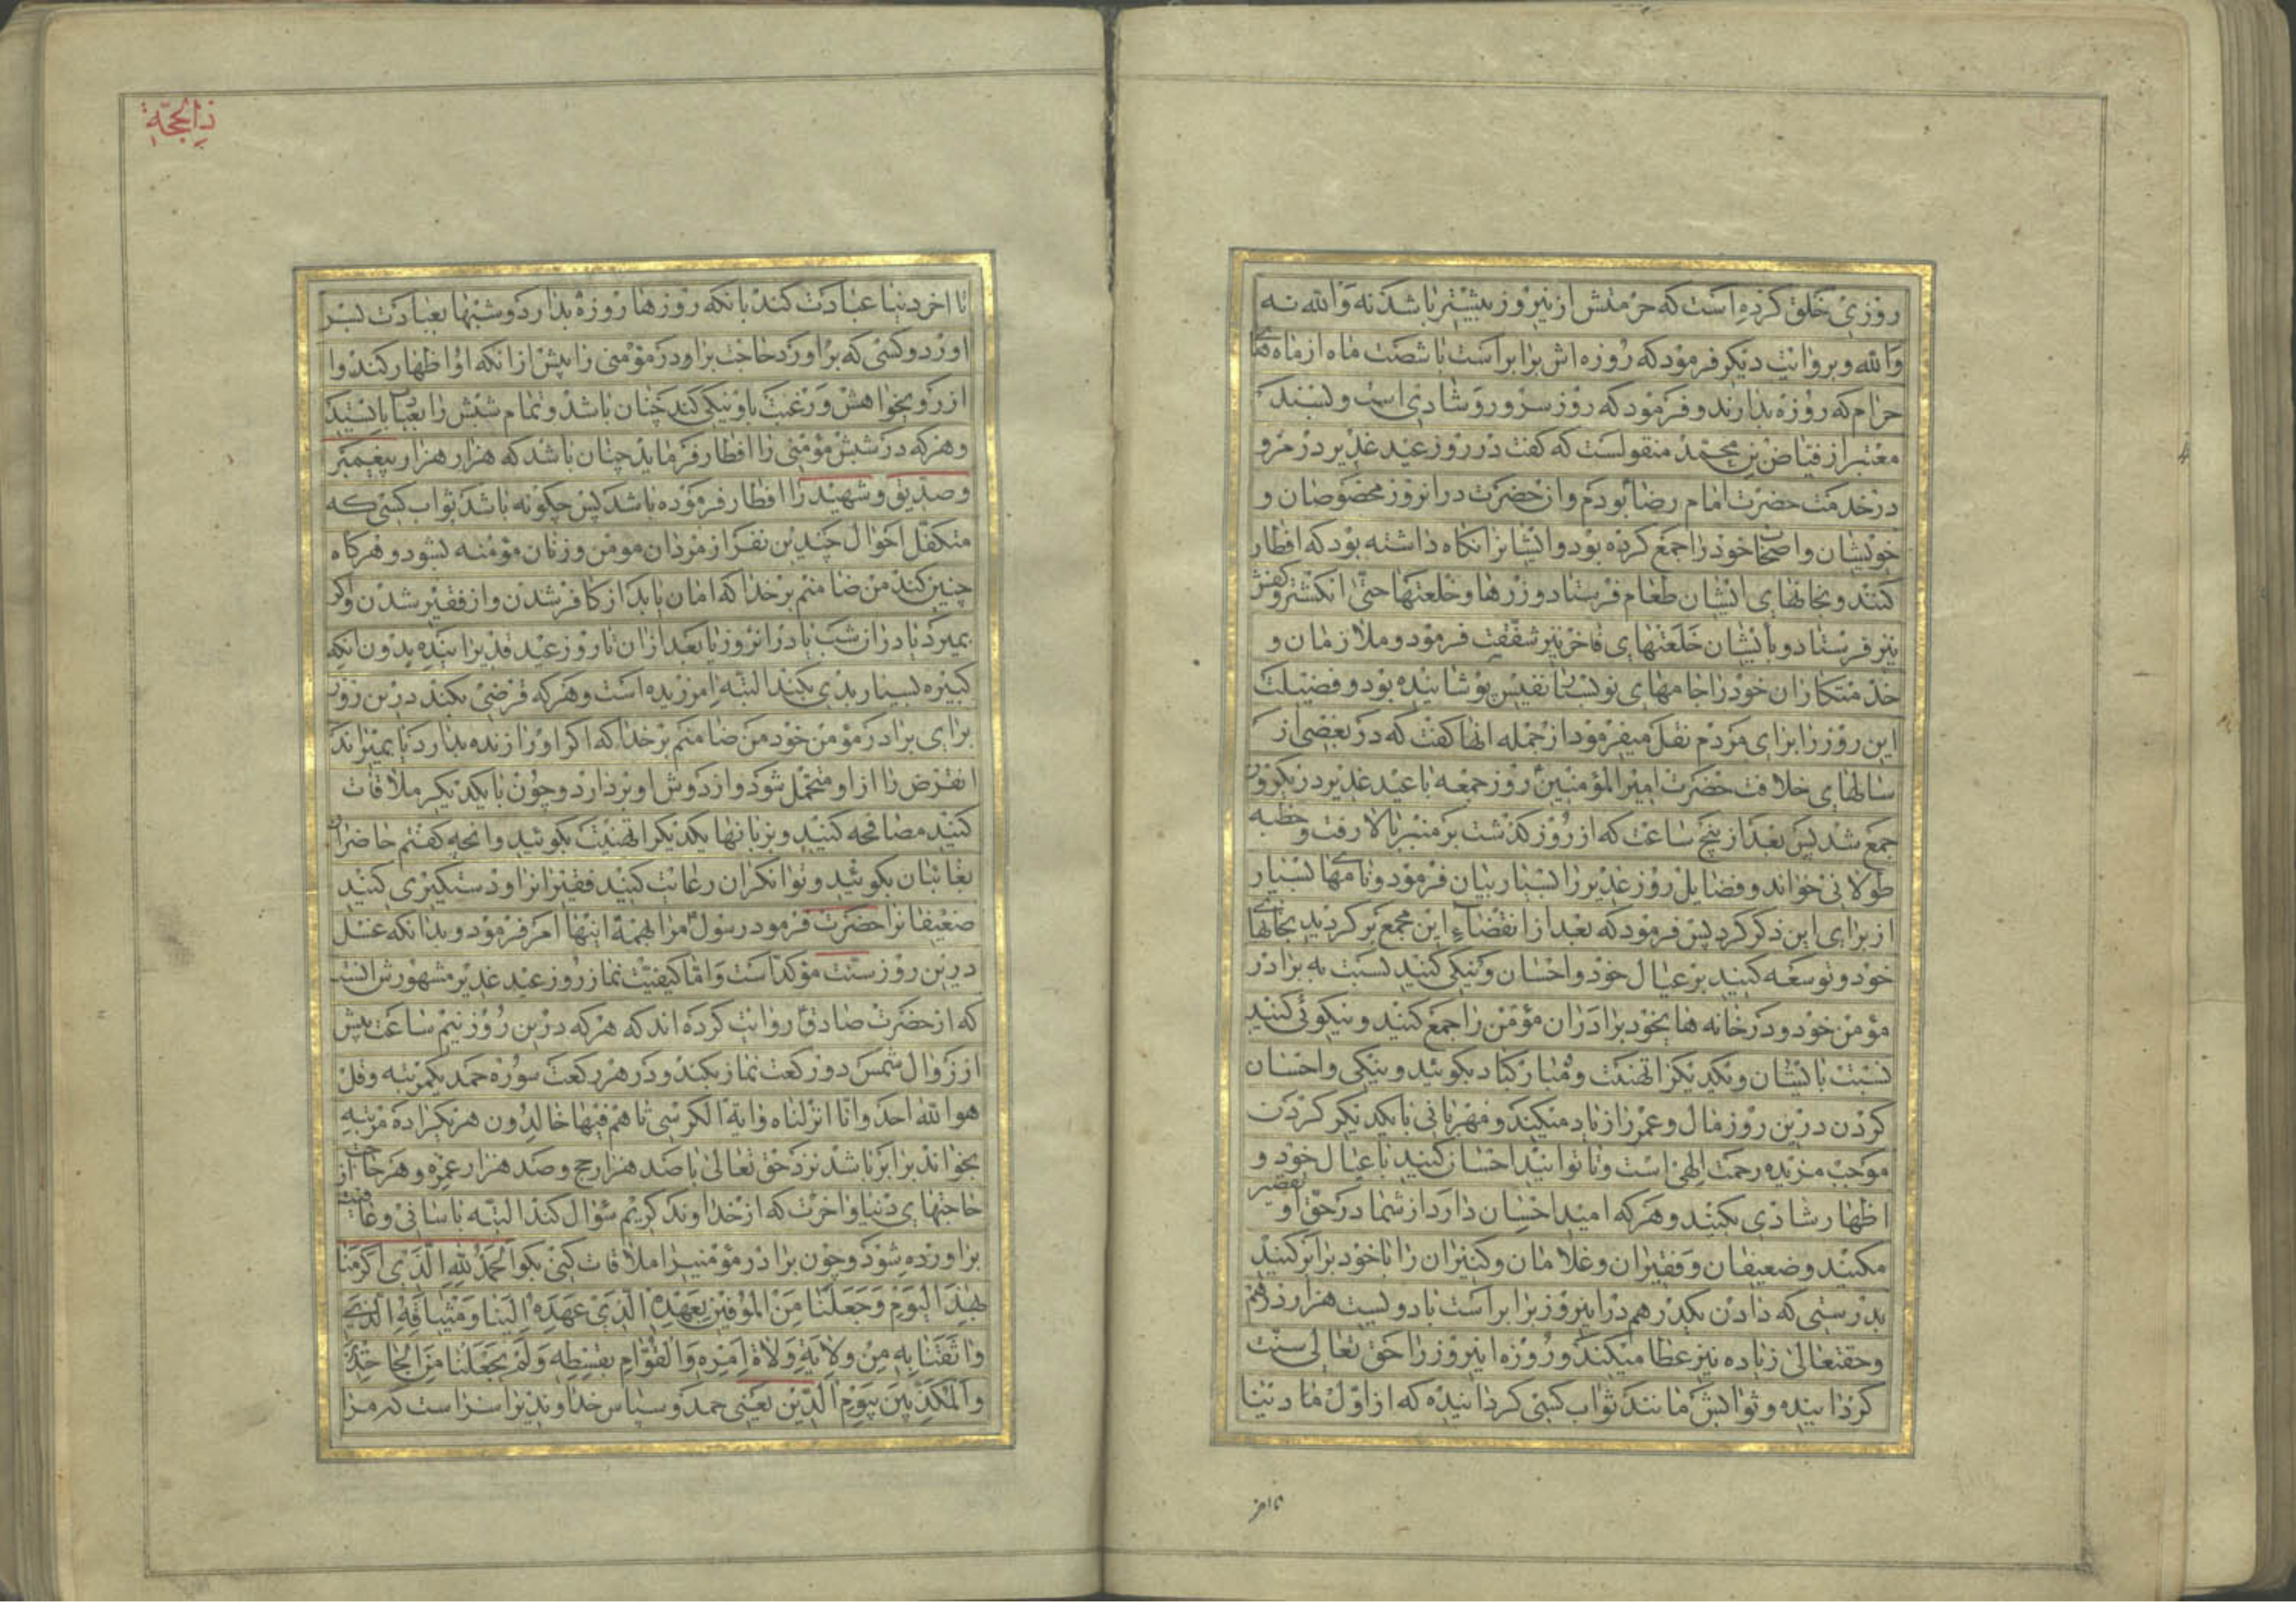 روزی خلق کرده است که حرمتش ازینروز بیشتر باشد نه والله نه
والله و بروایت دیکر فرمود که روزه اش برابر است با شصت ماه از ماه های
حرام که روزه بدارند و فرمود که روز سرور و شادی است و بسند
معتبر از فیاض بن محمد منقولست که کفت در روز عید غدیر در مرو
در خدمت حضرت امام رضا بودم و انحضرت در انروز مخصوصان و
خویشان و اصحاب خود را جمع کرده بود و ایشانرا نکاه داشته بود که افطار
کنند و بخانهای ایشان طعام فرستاد و زرها و خلعتها حتی انکشتر و کفش
نیز فرستاد و بایشان خلعتهای فاخر نیز شفقت فرمود و ملازمان و
خدمتکاران خود را جامهای نو بسیار نفیس پوشانیده بود و فضیلت
این روز را برای مردم نقل میفرمود از جمله انها کفت که در بعضی از
سالهای خلافت حضرت امیر المؤمنین روز جمعه با عید غدیر در یکروز
جمع شد پس بعد از پنج ساعت که از روز کذشت بر منبر بالا رفت و خطبه
طولانی خواند و فضایل روز غدیر را بسیار بیان فرمود و نامهای بسیار
از برای این ذکر کرد پس فرمود که بعد از انقضاء این مجمع برکردید بخانهای
خود و توسعه کنید بر عیال خود و احسان و نیکی کنید نسبت به برادر
مؤمن خود و در خانه های خود برادران مؤمن را جمع کنید و نیکوئی کنید
نسبت بایشان و یکدیکر را تهنیت و مبارکباد بکوئید و نیکی و احسان
کردن درین روز مال و عمر را زیاد میکند و مهربانی با یکدیکر کردن
موجب مزیده رحمت الهی است و تا توانید احسان کنید با عیال خود و
اظهار شادی بکنید و هر که امید احسان دارد از شما در حق او تقصیر
مکنید و ضعیفان و فقیران و غلامان و کنیزان را با خود برابر کنید
بدرستی که دادن یکدرهم در اینروز برابر است با دویست هزار درهم
و حقتعالی زیاده نیز عطا میکند و روزه اینروز را حق تعالی سنت
کردانیده و ثوابش مانند ثواب کسی کردانیده که از اول ما دنیا
تا اخر
ذی الحجة
تا اخر دنیا عبادت کند بانکه روزها روزه بدارد و شبها بعبادت بسر
اورد و کسی که براورد حاجت برادر مؤمنی را پیش از انکه او اظهار کند و ا
از رو بخواهش و رغبت باو نیکی کند چنان باشد و تمام شبش را بعبادت بایستید
و هر که در شبش مؤمنی را افطار فرماید چنان باشد که هزار هزار پیغمبر
و صدیق و شهید را افطار فرموده باشد پس چکونه باشد ثواب کسی که
متکفل احوال چندین نفر از مردان مومن و زنان مؤمنه بشود و هرکاه
چنین کند من ضامنم بر خدا که امان یابد از کافر شدن و از فقیر شدن و اکر
بمیرد یا در ان شب یا در انروز یا بعد از ان تا روز عید غدیر اینده بدون انکه
کبیره بسیار بدی بکند البته امرزیده است و هر که قرضی بکند درین روز
برای برادر مؤمن خود من ضامنم بر خدا که اکر او را زنده بدارد یا بمیراند
انقرض را از او متحمل شود و از دوش او بردارد و چون با یکدیکر ملاقات
کنید مصافحه کنید و بزبانها یکدیکر را تهنیت بکوئید و انچه کفتم حاضران
بغائبان بکوئید و توانکران رعایت کنید فقیرانرا و دستکیری کنید
ضعیفانرا حضرت فرمود رسول مرا بهمه اینها امر فرمود و بدانکه غسل
درین روز سنت مؤکد است و اما کیفیت نماز روز عید غدیر مشهورش انست
که از حضرت صادق روایت کرده اند که هر که درین روز نیم ساعت پیش
از زوال شمس دو رکعت نماز بکند و در هر رکعت سوره حمد یکمرتبه و قل
هو الله احد و انا انزلناه و ایة الکرسی تا هم فیها خالدون هر یکرا ده مرتبه
بخواند برابر باشد نزد حق تعالی با صد هزار حج و صد هزار عمره و هر حاجت از
حاجتهای دنیا و اخرت که از خداوند کریم سؤال کند البته باسانی و عافیت
براورده شود و چون برادر مؤمنیرا ملاقات کنی بکو الحمد لله الذی اکرمنا
بهذا الیوم و جعلنا من الموفین بعهده الذی عهده الینا و میثاقه الذی
واثقنا به من ولایة ولاة امره و القوام بقسطه و لم یجعلنا من الجاحدین
و المکذبین بیوم الدین یعنی حمد و سپاس خداوندیرا سزاست که مرا